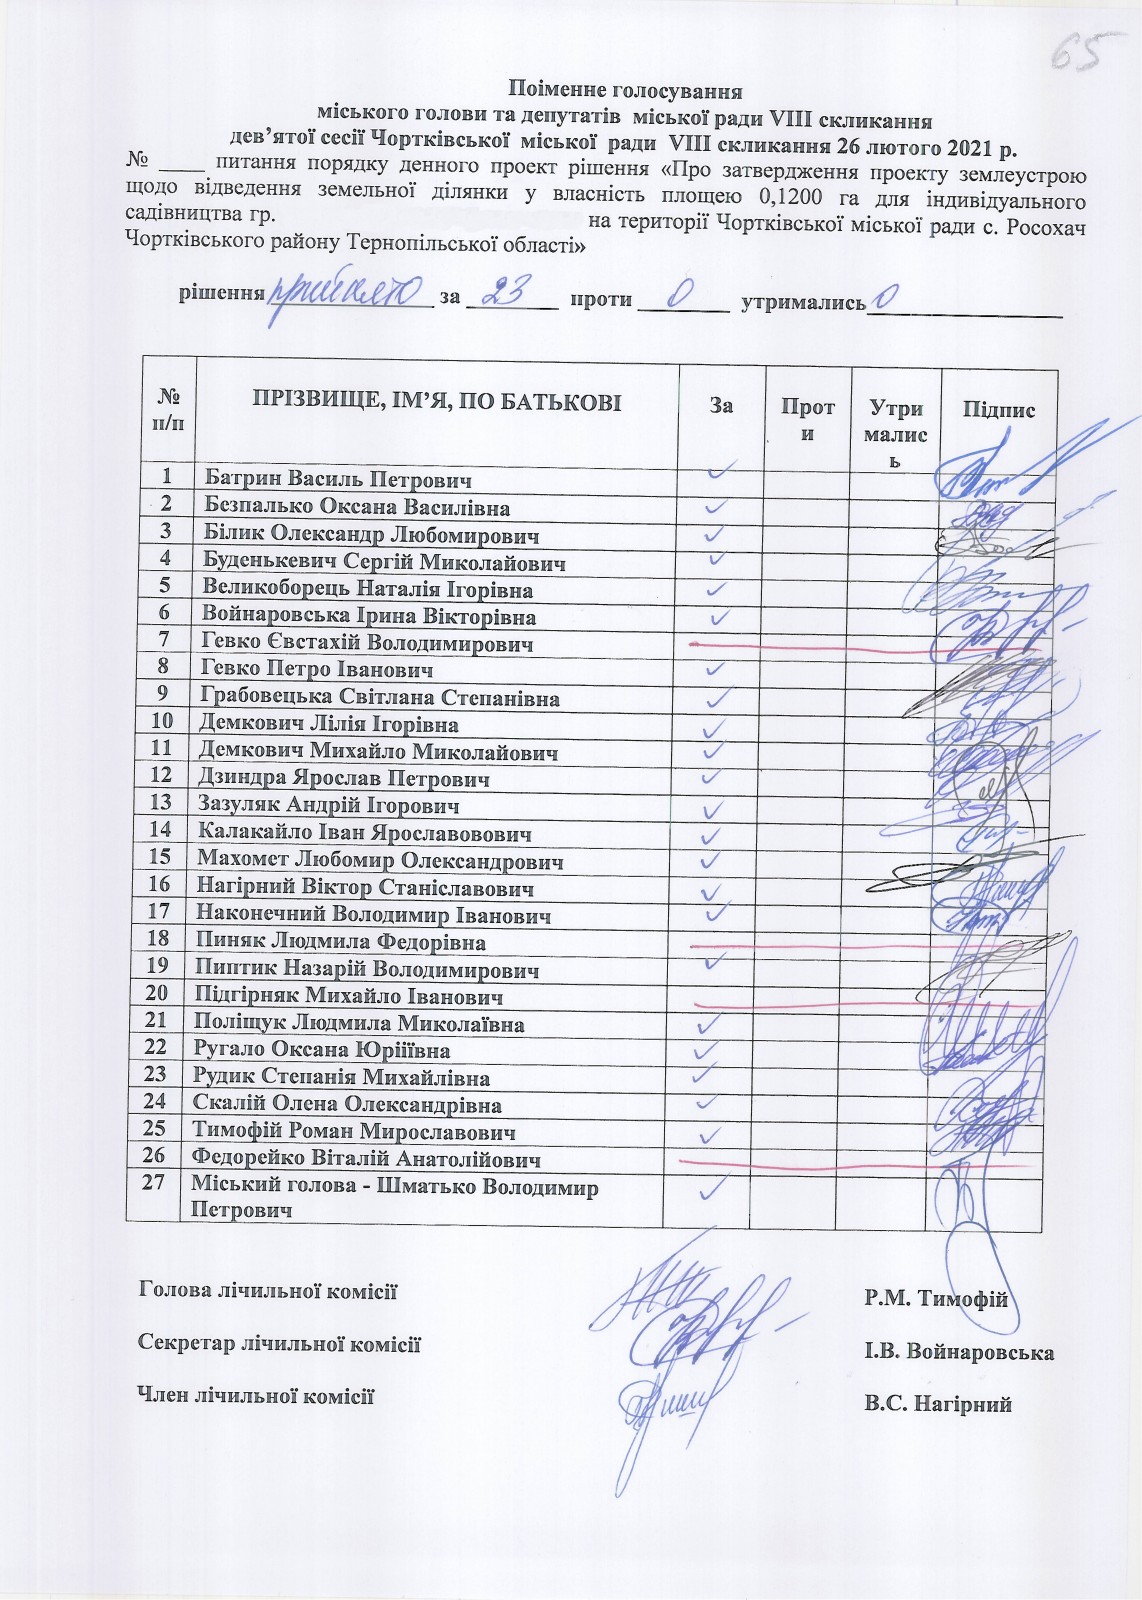 65
Поіменне голосування
міського голови та депутатів міської ради VIII скликання
дев’ятої сесії Чортківської міської ради VIII скликання 26 лютого 2021 р.
№ ____ питання порядку денного проект рішення «Про затвердження проекту землеустрою
щодо відведення земельної ділянки у власність площею 0,1200 га для індивідуального
садівництва гр. на території Чортківської міської ради с. Росохач
Чортківського району Тернопільської області»
рішення прийнято за 23 проти 0 утримались 0
№ п/п ПРІЗВИЩЕ, ІМ’Я, ПО БАТЬКОВІ За Проти Утримались Підпис
1 Батрин Василь Петрович ✓
2 Безпалько Оксана Василівна ✓
3 Білик Олександр Любомирович ✓
4 Буденькевич Сергій Миколайович ✓
5 Великоборець Наталія Ігорівна ✓
6 Войнаровська Ірина Вікторівна ✓
7 Гевко Євстахій Володимирович
8 Гевко Петро Іванович ✓
9 Грабовецька Світлана Степанівна ✓
10 Демкович Лілія Ігорівна ✓
11 Демкович Михайло Миколайович ✓
12 Дзиндра Ярослав Петрович ✓
13 Зазуляк Андрій Ігорович ✓
14 Калакайло Іван Ярославовович ✓
15 Махомет Любомир Олександрович ✓
16 Нагірний Віктор Станіславович ✓
17 Наконечний Володимир Іванович ✓
18 Пиняк Людмила Федорівна
19 Пиптик Назарій Володимирович ✓
20 Підгірняк Михайло Іванович
21 Поліщук Людмила Миколаївна ✓
22 Ругало Оксана Юріїівна ✓
23 Рудик Степанія Михайлівна ✓
24 Скалій Олена Олександрівна ✓
25 Тимофій Роман Мирославович ✓
26 Федорейко Віталій Анатолійович
27 Міський голова - Шматько Володимир ✓
Петрович
Голова лічильної комісії Р.М. Тимофій
Секретар лічильної комісії І.В. Войнаровська
Член лічильної комісії В.С. Нагірний